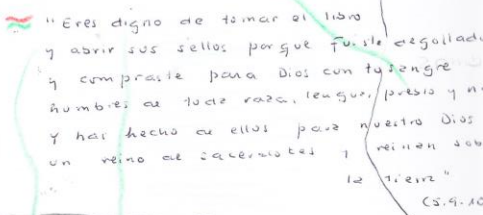 "Eres digno de tomar el libro
y abrir sus sellos porque fuiste degollad
y compraste para Dios con tu sangre
hombres de toda raza, lengua, pueblo y n
y has hecho de ellos para nuestro Dios
un reino de sacerdotes y reinan sob
la tierra"
(5.9.10